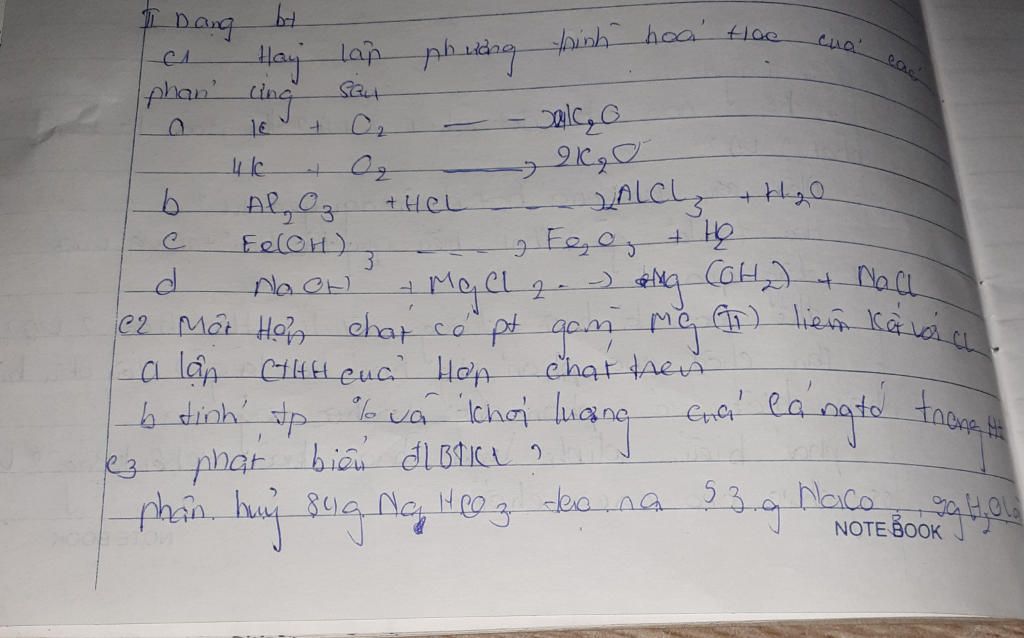 II Dạng bt
C1 Hãy lập phương trình hoá học của các
phản ứng sau
a K + O2 --- K2O
4K + O2 → 2K2O
b Al2O3 + HCl ---> AlCl3 + H2O
c Fe(OH)3 ---> Fe2O3 + H2
d NaOH + MgCl2 --> Mg(OH2) + NaCl
C2 Một Hợp chất có pt gồm Mg (II) liên Kết với Cl
a lập CTHH của Hợp chất trên
b tính tp % về khối lượng của cá ngtố trong
C3 phát biểu đlBTKL?
phân huỷ 84g NaHCO3 53g NaCO3 9g H2O
NOTEBOOK